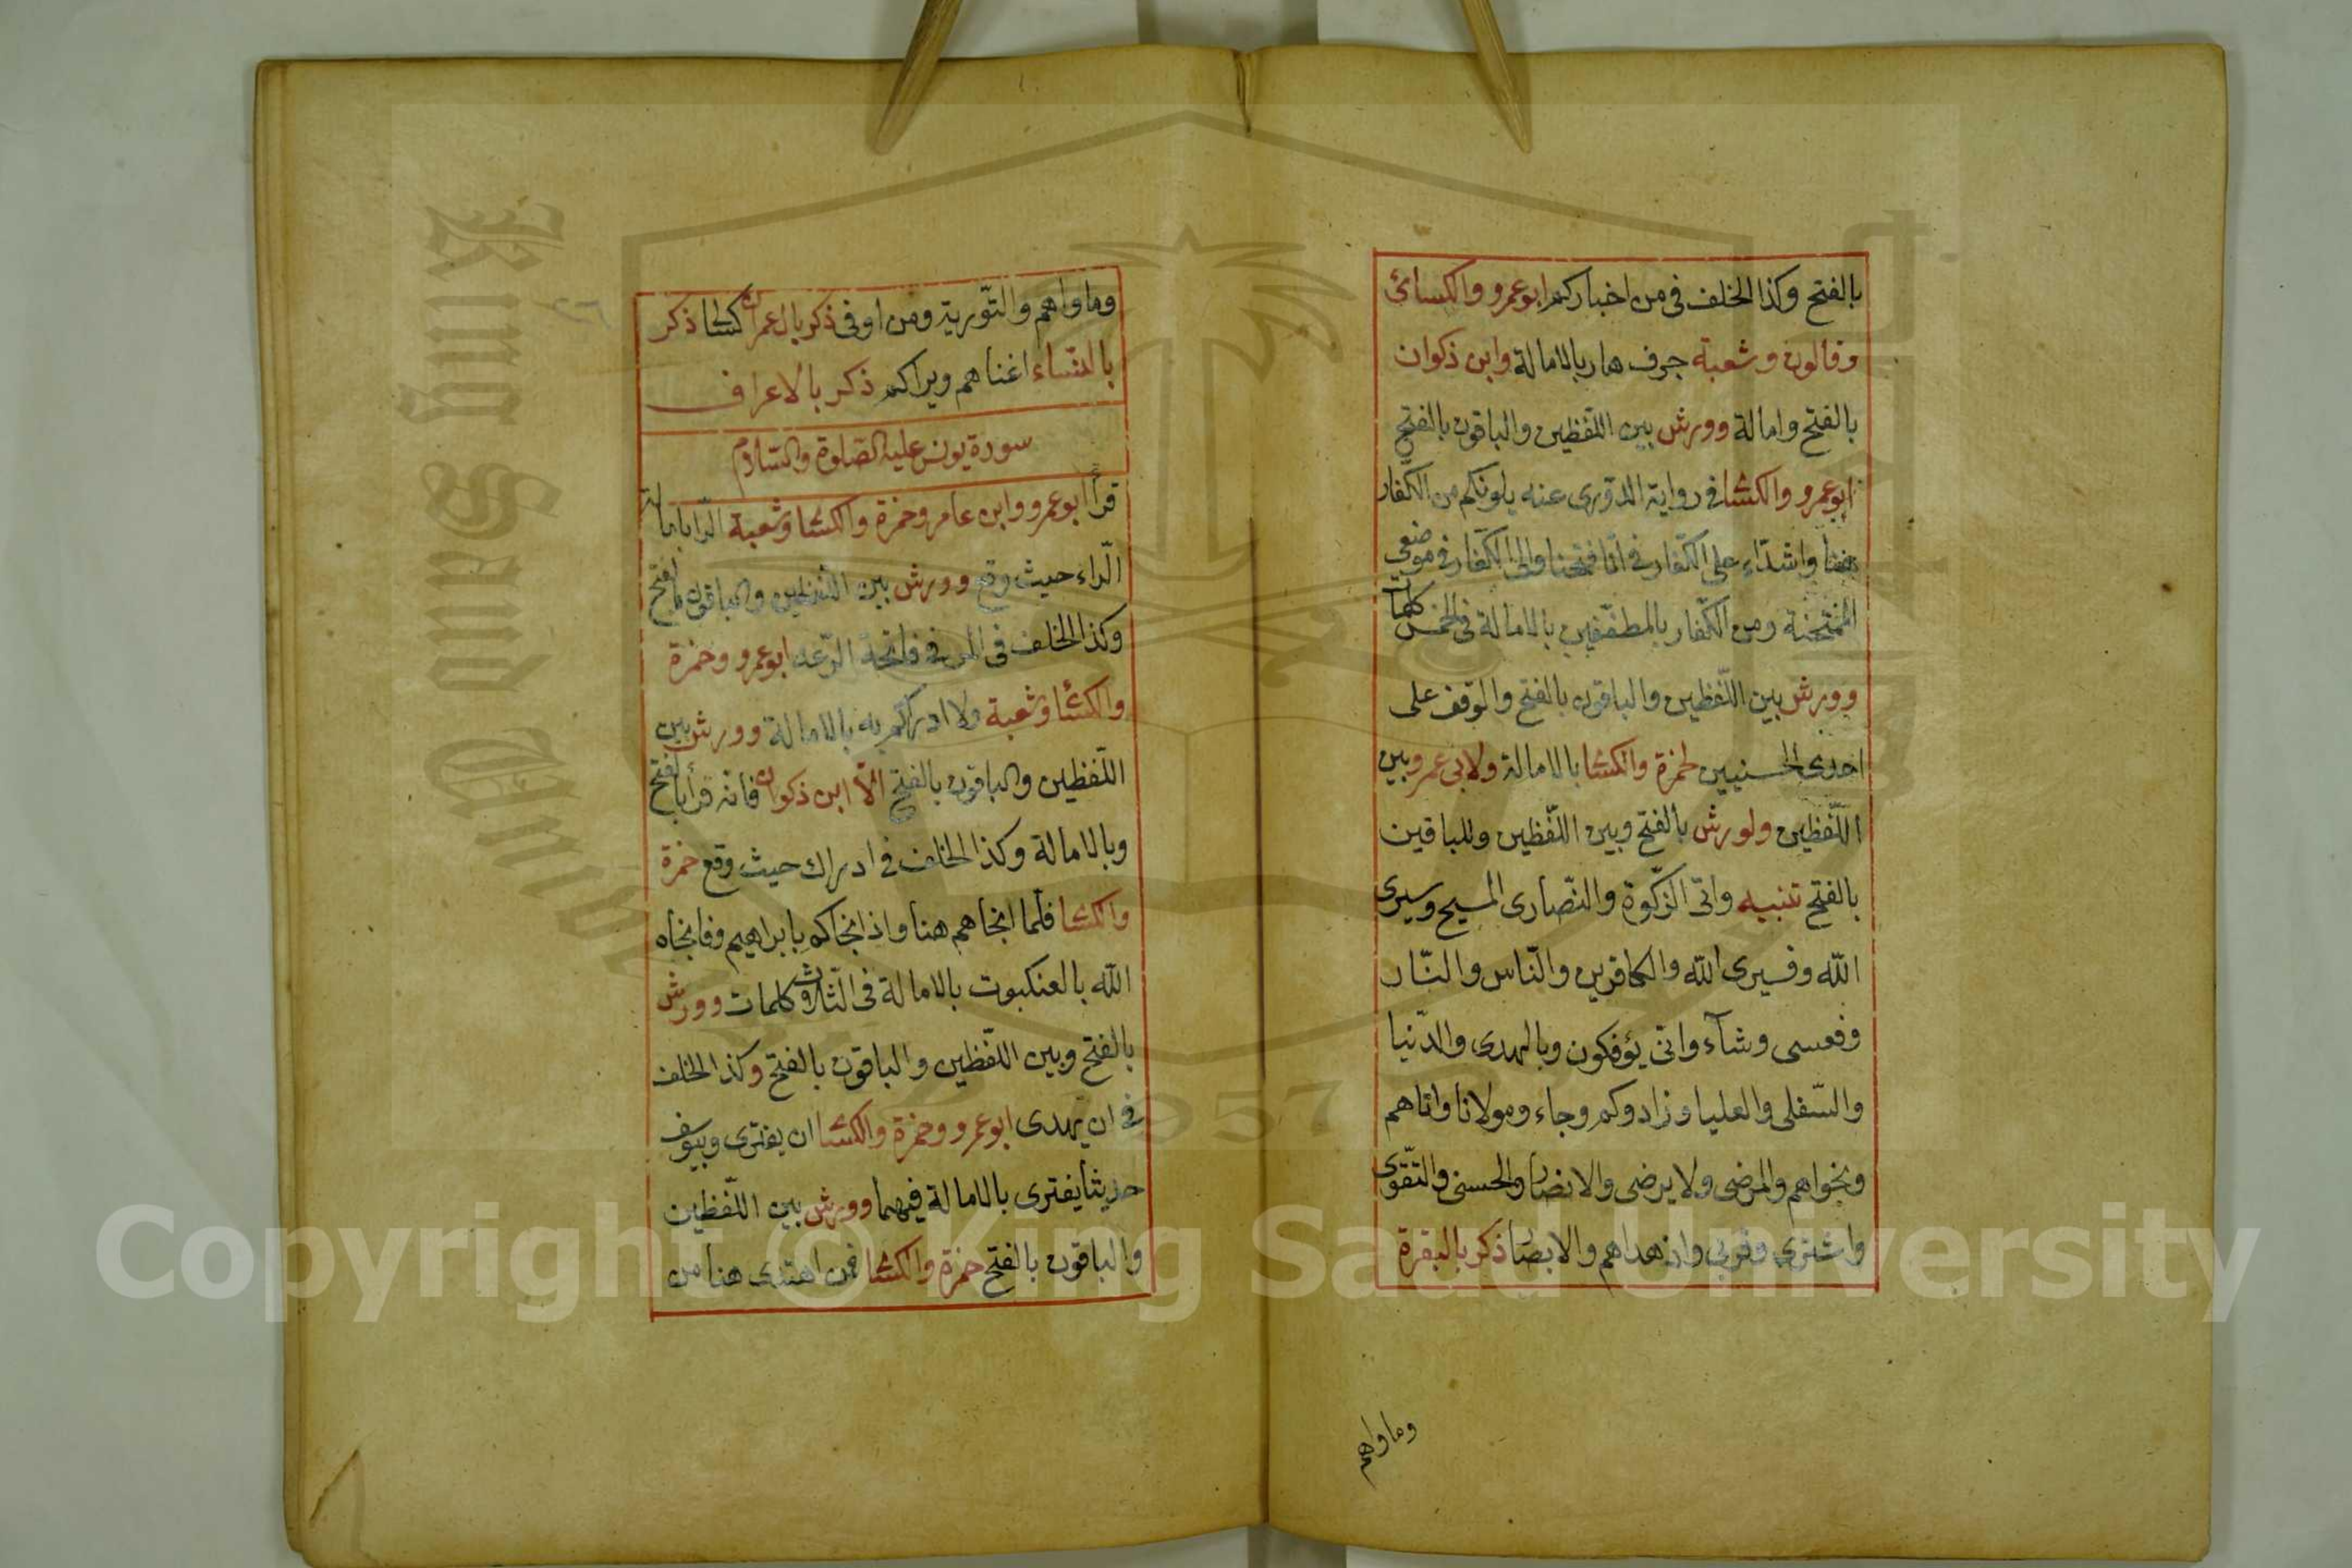 بالفتح وكذا الخلف في من اخباركم ابو عمرو والكسائي
وقالون وشعبة جرف هار بالامالة وابن ذكوان
بالفتح وامالة وورش بين اللفظين والباقون بالفتح
ابو عمرو والكسا في رواية الدّوري عنه يلونكم من الكفّار
هنا واشدّاء على الكفّار في انّا فتحنا والى الكفّار في موضعي
الممتحنة ومن الكفّار بالمطفّفين بالامالة في الخمس كلمات
وورش بين اللّفظين والباقون بالفتح والوقف على
احدى الحسنيين لحمزة والكسا بالامالة ولابي عمرو بين
اللّفظين ولورش بالفتح وبين اللّفظين وللباقين
بالفتح تنبيه واتى الزّكوة والنّصارى المسيح وسيرى
الله وفسيرى الله والكافرين والنّاس والنّار
وفعسى وشآء وانى يؤفكون وبالهدى والدّنيا
والسّفلى والعليا وزادوكم وجاء ومولانا واتاهم
ونجواهم والمرضى ولا يرضى والانصار والحسنى والتّقوى
واشترى وقربى واذ هداهم والابصار ذكر بالبقرة
وماواهم
وماواهم والتّورية ومن اوفى ذكر بال عمران كسالى ذكر
بالنّساء اغناهم ويراكم ذكر بالاعراف
سورة يونس عليه الصّلوة والسّلام
قرأ ابو عمرو وابن عامر وحمزة والكسا وشعبة الرا بامالة
الرّاء حيث وقع وورش بين اللّفظين والباقون بالفتح
وكذا الخلف في المر في فاتحة الرّعد ابو عمرو وحمزة
والكسا وشعبة ولا ادراكم به بالامالة وورش بين
اللّفظين والباقون بالفتح الّا ابن ذكوان فانه قرأ بالفتح
وبالامالة وكذا الخلف في ادراك حيث وقع حمزة
والكسا فلّما انجاهم هنا واذ انجاكم بابراهيم وفانجاه
الله بالعنكبوت بالامالة في الثّلاث كلمات وورش
بالفتح وبين اللّفظين والباقون بالفتح وكذا الخلف
في ان يّهدى ابو عمرو وحمزة والكسا ان يفترى وبيوسف
حديثا يفترى بالامالة فيهما وورش بين اللّفظين
والباقون بالفتح حمزة والكسا فمن اهتدى هنا من
King Saud
1957
Copyright © King Saud University